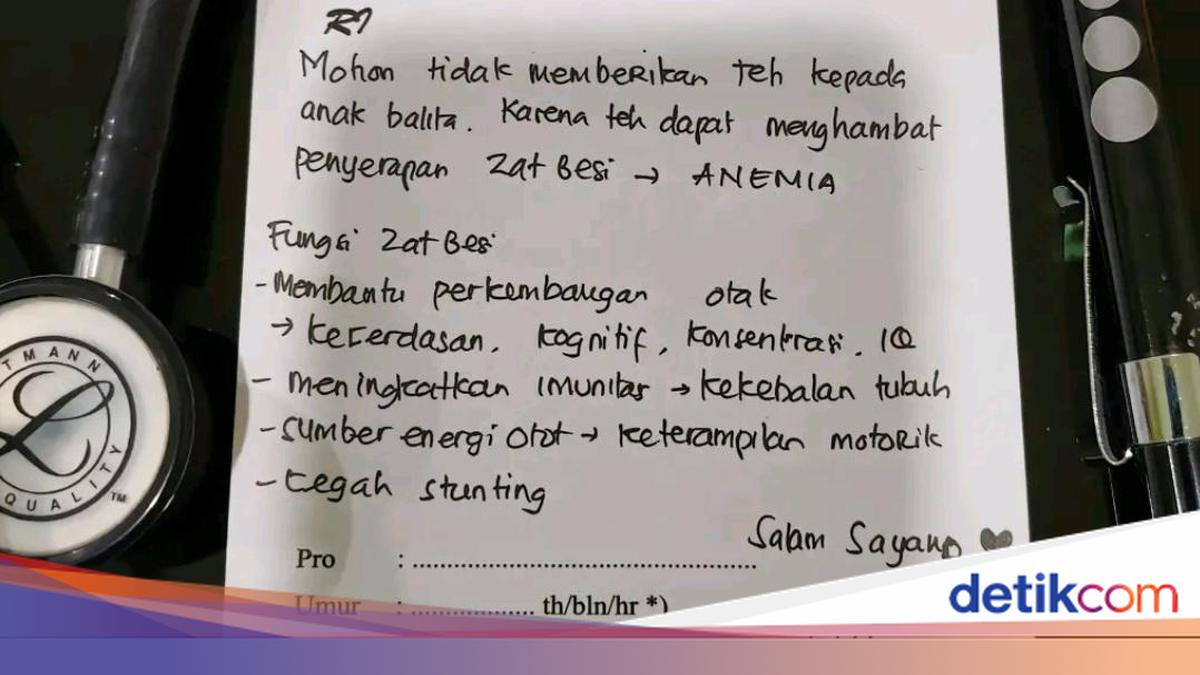 R/
Mohon tidak memberikan teh kepada
anak balita. Karena teh dapat menghambat
penyerapan Zat Besi → ANEMIA
Fungsi Zat Besi
- Membantu perkembangan otak
→ kecerdasan, kognitif, konsentrasi, IQ
- meningkatkan imunitas → kekebalan tubuh
- sumber energi otot → keterampilan motorik
- cegah stunting
Salam Sayang ♥
Pro : ..................................................
Umur : .................. th/bln/hr *)
TMANN
QUALITY
TM
detikcom